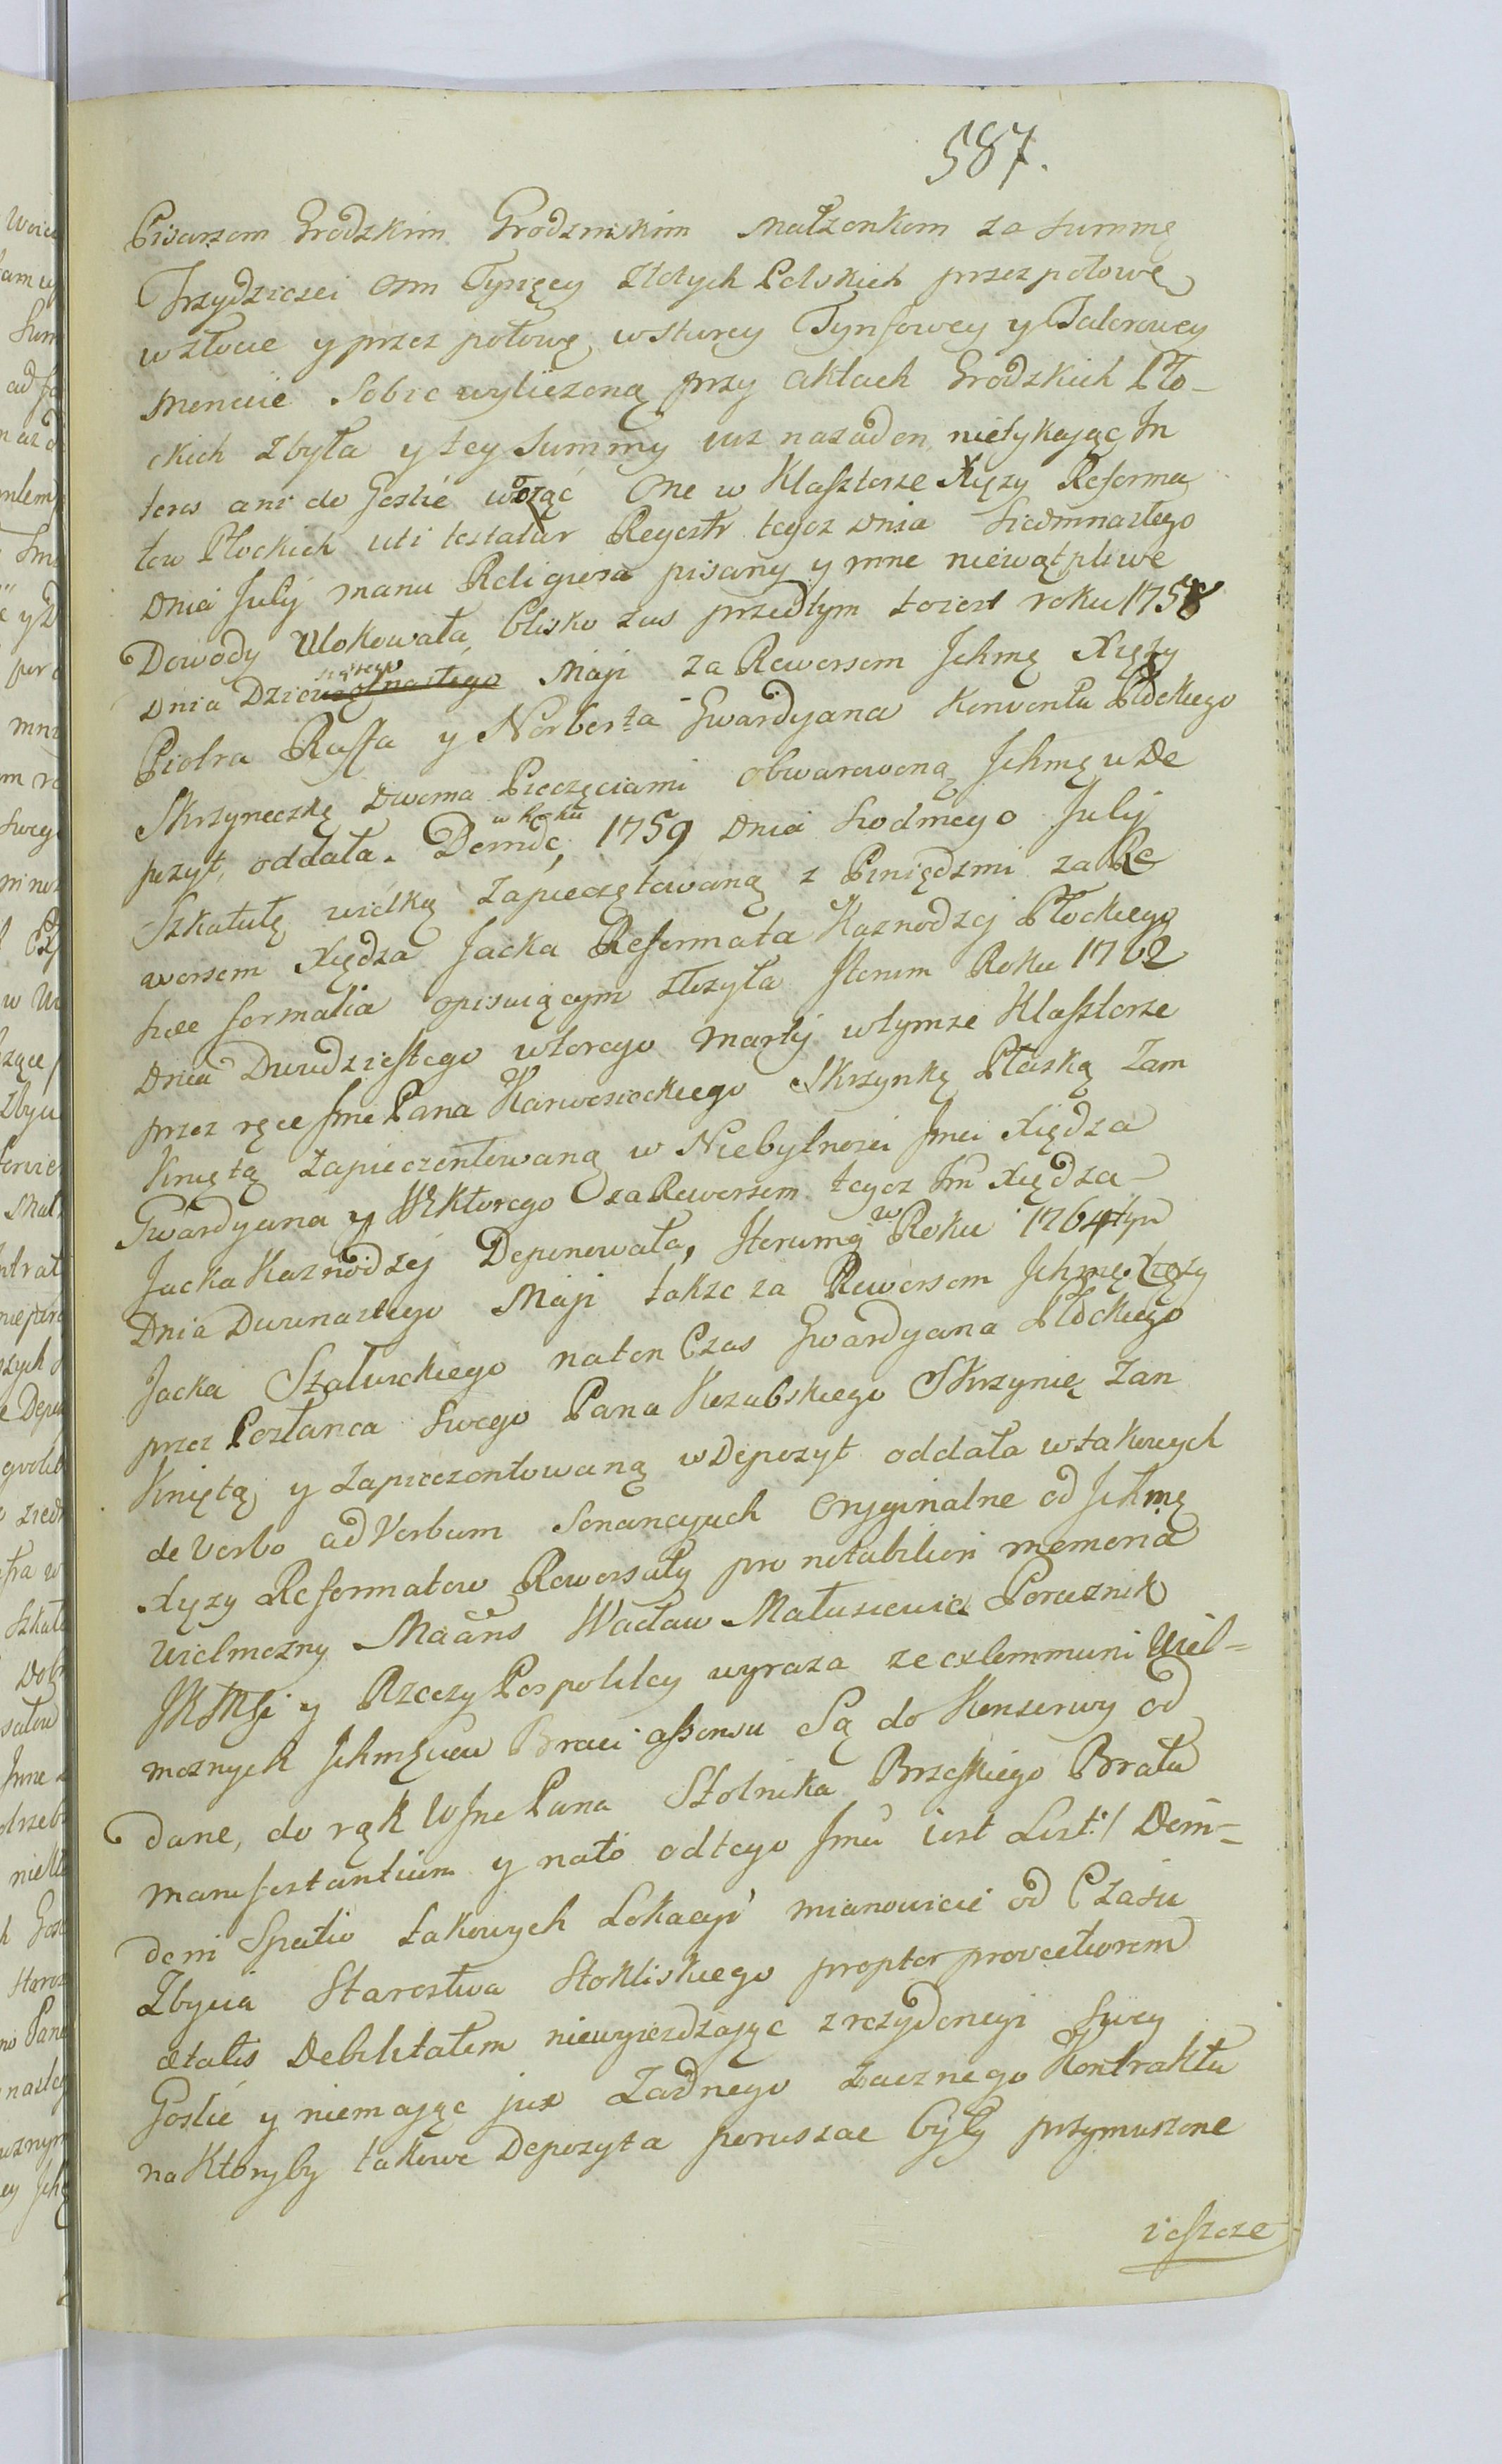 587.
Pisarzom Grodzkim Grodzinskim małzonkom za Summę
Trzydziesci Osm Tysięcy Złotych Polskich przez połowę
w złocie y przez połowę w starey Tynfowey y Talerowey
monecie sobie wyliczoną przy aktach Grodzkich Pło-
ckich zbyła y tey Summy iuz nazaden nietykając In
teres ani do Goslic woząc One w Klasztorze Xięzy Reforma
tow Płockich uti testatur Regestr tegoz dnia Siedmnastego
Dnia Julÿ manu Religiosa pisany y inne niewątpliwe
Dowody Ulokowała, blisko zas przedtym toiest roku 1758
Dnia Dziewiątego Maji za Rewersem Jchmę Xięzy
Piotra Raffa y Norberta Gwardyana Konwentu Płockiego
Skrzyneczkę dwoma Pieczęciami obwarowaną Jchmę w De
pozyt, oddała. Demde, w Roku 1759 Dnia Siodmego Julÿ
Szkatułę wielką zapieczętowaną z Pieniędzmi za Re
wersem Xiędza Jacka Reformata Kaznodzej Płockiego
haec formalia opisuiącym złozyła Iterum Roku 1762
Dnia Dwudziestego wtorego Martij w tymze Klasztorze
przez ręce Jme Pana Karwosieckiego Skrzynkę Płaską Zam
Kniętą zapieczentowaną w Niebytnosci Jmci Xiędza
Gwardyana y Wktorego za Rewersem tegoz Jm Xiędza
Jacka Kaznodzej Deponowała, Iterum w Roku 1764tym
Dnia Dwunastego Maji takze za Rewersem Jchmę Xięzy
Jacka Szaluckiego naten Czas Gwardyana Płockiego
przez Posłanca Swego Pana Kozubskiego Skrzynię Zan
Kniętą y zapieczontowaną w Depozyt oddała w takowych
de Verbo ad Verbum Sonancyach Oryginalne od Jchmę
Xięzy Reformatow Rewersały pro notabiliori memoria
Wielmozny Maans Wacław Małusiewicz Porucznik
JKMsi y Rzeczy Pospolitey wyraza ze ex communi Wiel-
moznych Jchmęciow Braci assensu Są do Konserwy od
dane, do rąk WJne Pana Stolnika Brzeskiego Brata
manifestantium y nato od tego Jmci iest List :/ Dem-
dem Spatio takowych Lokacyi mianowicie od Czasu
Zbycia Starostwa Stokliskiego propter provectiorem
etatis Debilitatem niewyiezdzając z rezydencyi Swey
Goslic y niemając jux Zadnego zacznego Kontraktu
na Ktoryby takowe Depozyta poruszac były przymuszone
ieszcze